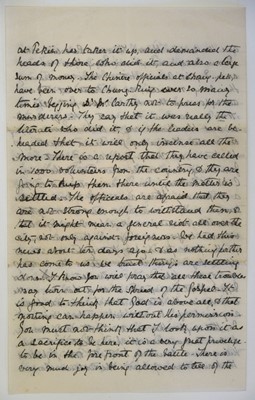 at Pekin has taken it up, and demanded the
heads of those who did it, and also a large
sum of money. The Chinese officials at
have been over to Chung King ever so many
times begging Dr. McCartney not to press for the
murderers. They say that it was really the
literati who did it, & if the leaders are be-
headed that it will only incense all the
more. There is a report that they have called
in 1000 volunteers from the country, & they are
going to keep them there until the matter is
settled. The officials are afraid that they
are not strong enough to withstand them &
that it might mean a general riot all over the
city, not only against foreigners. We had this
news about ten days ago & as nothing further
has come to us we trust things are settling
down. I know you will pray that all these troubles
may turn out for the spread of the Gospel. It
is good to think that God is above all, & that
nothing can happen without his permission.
You must not think that I look upon it as
a sacrifice to be here, it is a very great privilege
to be in the forefront of the battle. There is
very much joy in being allowed to tell of the